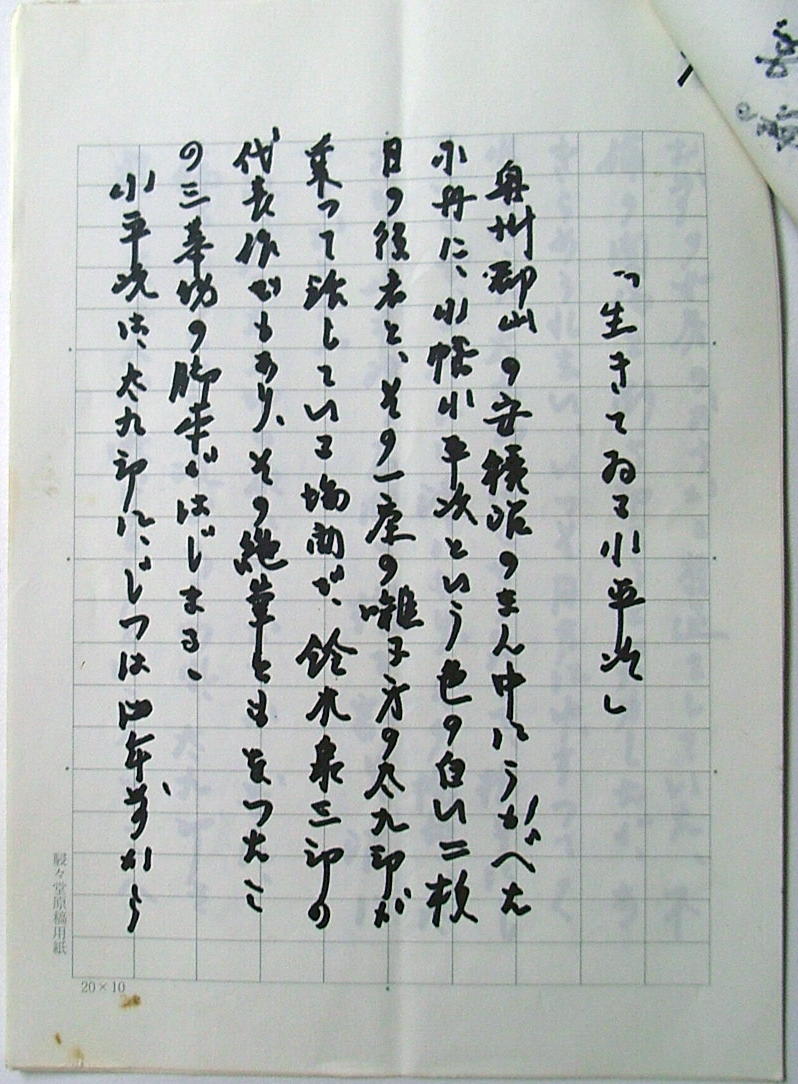 「生きてゐる小平次」
奥州郡山の安積沼のまん中にうかべた
小舟に、小幡小平次という色の白い二枚
目の役者と、その一座の囃子方の太九郎が
乗って話している場面で、鈴木泉三郎の
代表作でもあり、その絶筆ともなったこ
の三幕物の脚本がはじまる。
小平次は、太九郎に、じつは四年前から
駸々堂原稿用紙
20×10